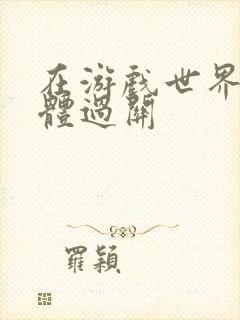 在游戲世界
體過關
羅穎